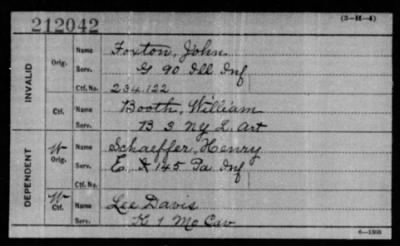 212042
(3-H-4)
INVALID
Orig.
Name Foxton, John
Serv. G 90 Ill Inf
Ctf. No. 234.122
Ctf.
Name Booth, William
Serv. B 3 NY L. Art
DEPENDENT
W
Orig.
Name Schaeffer, Henry
Serv. E & 145 Pa Inf
Ctf. No.
W
Ctf.
Name Lee Davis
Serv. K 1 Mo Cav
6-1308